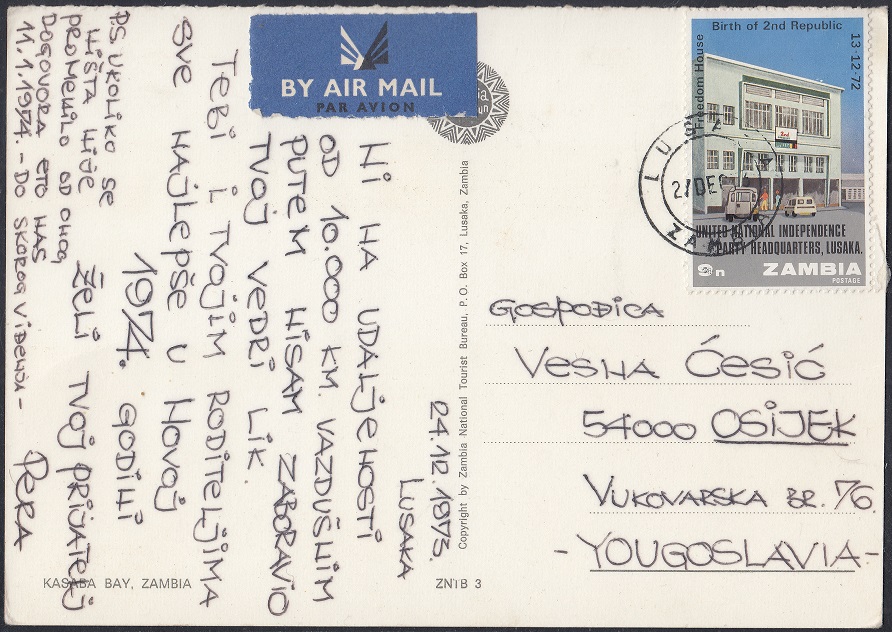 LUSAKA
24.12.1973.
NI NA UDALJENOSTI
OD 10.000 KM. VAZDUŠNIM
PUTEM NISAM ZABORAVIO
TVOJ VEDRI LIK.
TEBI I TVOJIM RODITELJIMA
SVE NAJLEPŠE U NOVOJ
1974. GODINI
ŽELI TVOJ PRIJATELJ
PERA
P.S. UKOLIKO SE
NIŠTA NIJE
PROMENILO OD ONOG
DOGOVORA ETO NAS
11.1.1974. - DO SKOROG VIĐENJA -
BY AIR MAIL
PAR AVION
Copyright by Zambia National Tourist Bureau, P.O. Box 17, Lusaka, Zambia
KASABA BAY, ZAMBIA
ZNTB 3
Birth of 2nd Republic
13-12-72
Freedom House
2nd
UNITED NATIONAL INDEPENDENCE
PARTY HEADQUARTERS, LUSAKA.
9n ZAMBIA
POSTAGE
GOSPOĐICA
VESNA ĆESIĆ
54000 OSIJEK
VUKOVARSKA BR. 76.
- YOUGOSLAVIA -